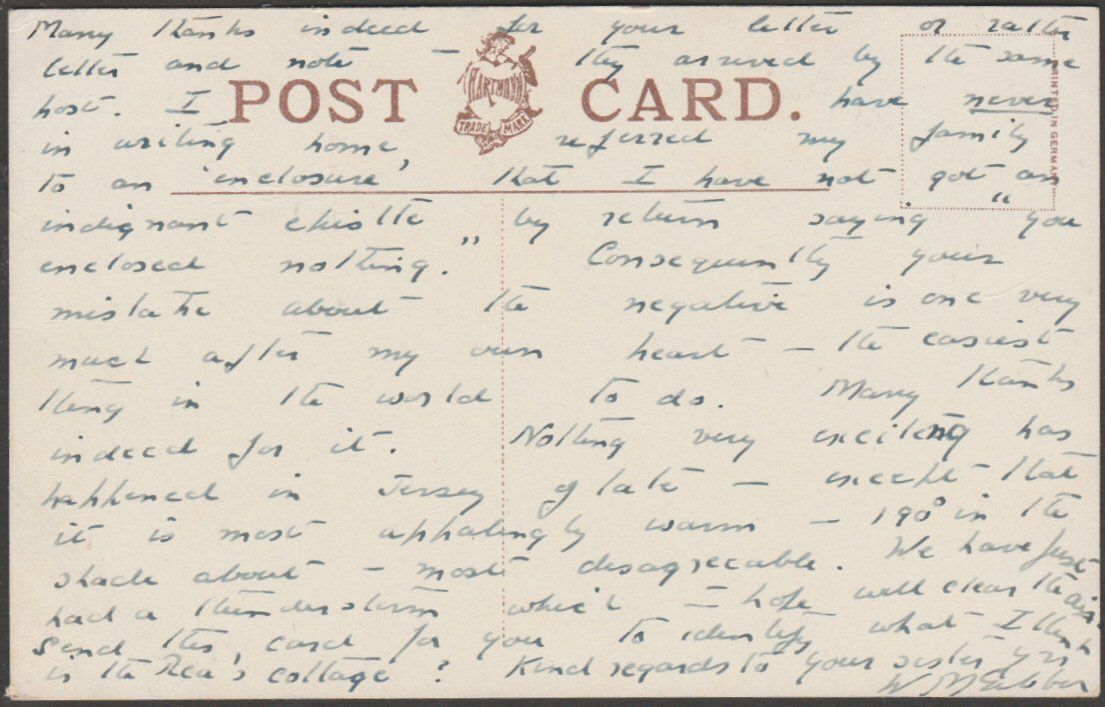 Many thanks indeed for your letter or rather
letter and note – they arrived by the same
post. I have never
POST CARD.
HARTMANN
TRADE MARK
PRINTED IN GERMANY
in writing home, referred my family
to an 'enclosure' that I have not got an
indignant epistle by return saying "you
enclosed nothing." Consequently your
mistake about the negative is one very
much after my own heart – the easiest
thing in the world to do. Many thanks
indeed for it. Nothing very exciting has
happened in Jersey of late – except that
it is most appalingly warm – 190° in the
shade about – most disagreeable. We have just
had a thunderstorm which I hope will clear the air.
Send this card for you to identify what I think
is the Rea's cottage? Kind regards to your sister Yrs